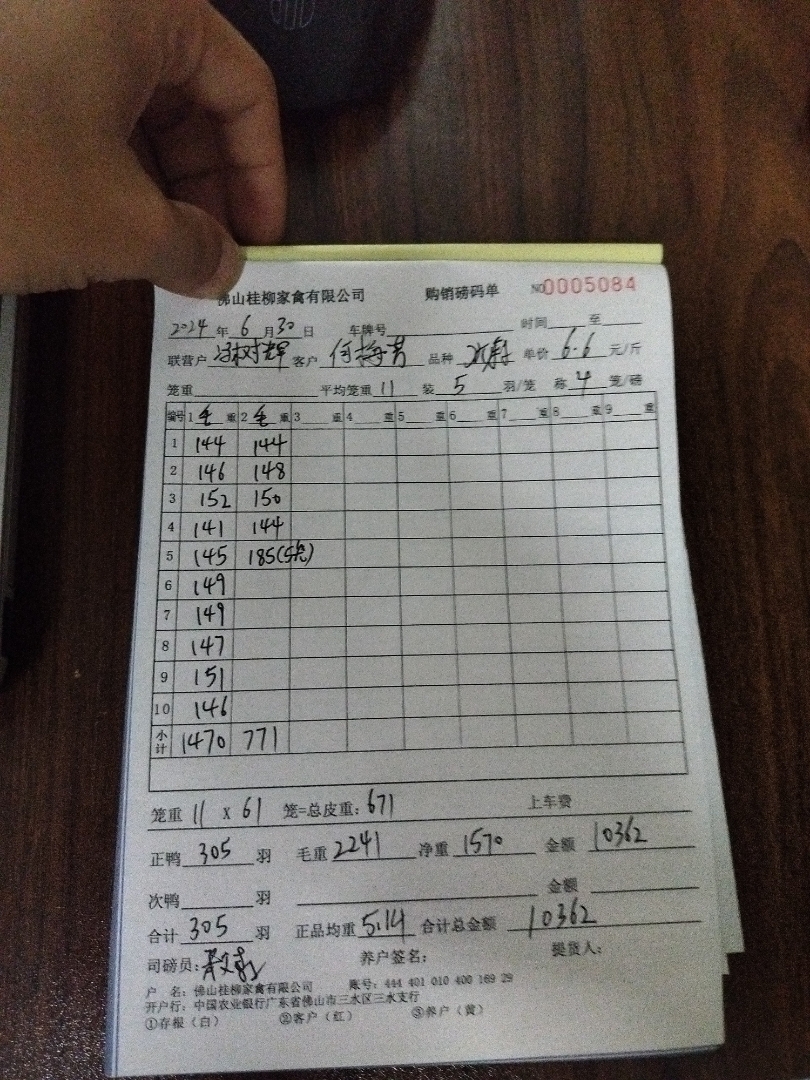 佛山桂柳家禽有限公司 购销磅码单 NO0005084
2024年6月30日 车牌号 时间 至
联营户 冯树辉 客户 何梅芳 品种 单价 6.6 元/斤
笼重 平均笼重 11 装 5 羽/笼 称 4 笼/磅
编号 1 毛 重 2 毛 重 3 重 4 重 5 重 6 重 7 重 8 重 9 重
1 144 144
2 146 148
3 152 150
4 141 144
5 145 185(5笼)
6 149
7 149
8 147
9 151
10 146
小计 1470 771
笼重 11 x 61 笼=总皮重: 671 上车费
正鸭 305 羽 毛重 2241 净重 1570 金额 10362
次鸭 羽 金额
合计 305 羽 正品均重 5.14 合计总金额 10362
司磅员: 养户签名: 提货人:
户 名: 佛山桂柳家禽有限公司 账号: 444 401 010 400 169 29
开户行: 中国农业银行广东省佛山市三水区三水支行
①存根(白) ②客户(红) ③养户(黄)